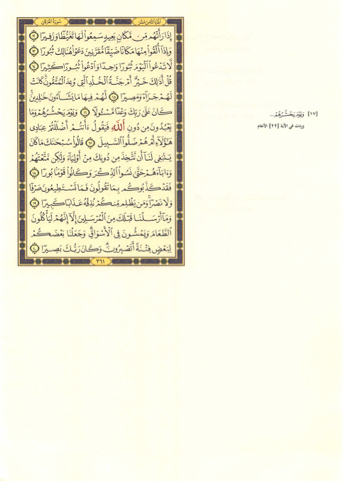 سُورَةُ الفُرْقَانِ
إِذَا رَأَتْهُم مِّن مَّكَانٍ بَعِيدٍ سَمِعُوا۟ لَهَا تَغَيُّظًا وَزَفِيرًا ١٢
وَإِذَآ أُلْقُوا۟ مِنْهَا مَكَانًا ضَيِّقًا مُّقَرَّنِينَ دَعَوْا۟ هُنَالِكَ ثُبُورًا ١٣
لَّا تَدْعُوا۟ ٱلْيَوْمَ ثُبُورًا وَٰحِدًا وَٱدْعُوا۟ ثُبُورًا كَثِيرًا ١٤
قُلْ أَذَٰلِكَ خَيْرٌ أَمْ جَنَّةُ ٱلْخُلْدِ ٱلَّتِى وُعِدَ ٱلْمُتَّقُونَ كَانَتْ
لَهُمْ جَزَآءً وَمَصِيرًا ١٥ لَّهُمْ فِيهَا مَا يَشَآءُونَ خَٰلِدِينَ
كَانَ عَلَىٰ رَبِّكَ وَعْدًا مَّسْـُٔولًا ١٦ وَيَوْمَ يَحْشُرُهُمْ وَمَا
يَعْبُدُونَ مِن دُونِ ٱللَّهِ فَيَقُولُ ءَأَنتُمْ أَضْلَلْتُمْ عِبَادِى
هَٰٓؤُلَآءِ أَمْ هُمْ ضَلُّوا۟ ٱلسَّبِيلَ ١٧ قَالُوا۟ سُبْحَٰنَكَ مَا كَانَ
يَنۢبَغِى لَنَآ أَن نَّتَّخِذَ مِن دُونِكَ مِنْ أَوْلِيَآءَ وَلَٰكِن مَّتَّعْتَهُمْ
وَءَابَآءَهُمْ حَتَّىٰ نَسُوا۟ ٱلذِّكْرَ وَكَانُوا۟ قَوْمًۢا بُورًا ١٨
فَقَدْ كَذَّبُوكُم بِمَا تَقُولُونَ فَمَا تَسْتَطِيعُونَ صَرْفًا
وَلَا نَصْرًا وَمَن يَظْلِم مِّنكُمْ نُذِقْهُ عَذَابًا كَبِيرًا ١٩
وَمَآ أَرْسَلْنَا قَبْلَكَ مِنَ ٱلْمُرْسَلِينَ إِلَّآ إِنَّهُمْ لَيَأْكُلُونَ
ٱلطَّعَامَ وَيَمْشُونَ فِى ٱلْأَسْوَاقِ وَجَعَلْنَا بَعْضَكُمْ
لِبَعْضٍ فِتْنَةً أَتَصْبِرُونَ وَكَانَ رَبُّكَ بَصِيرًا ٢٠
٣٦١
[١٧] وَيَوْمَ يَحْشُرُهُمْ...
وردت في الآية [٢٢] الأنعام